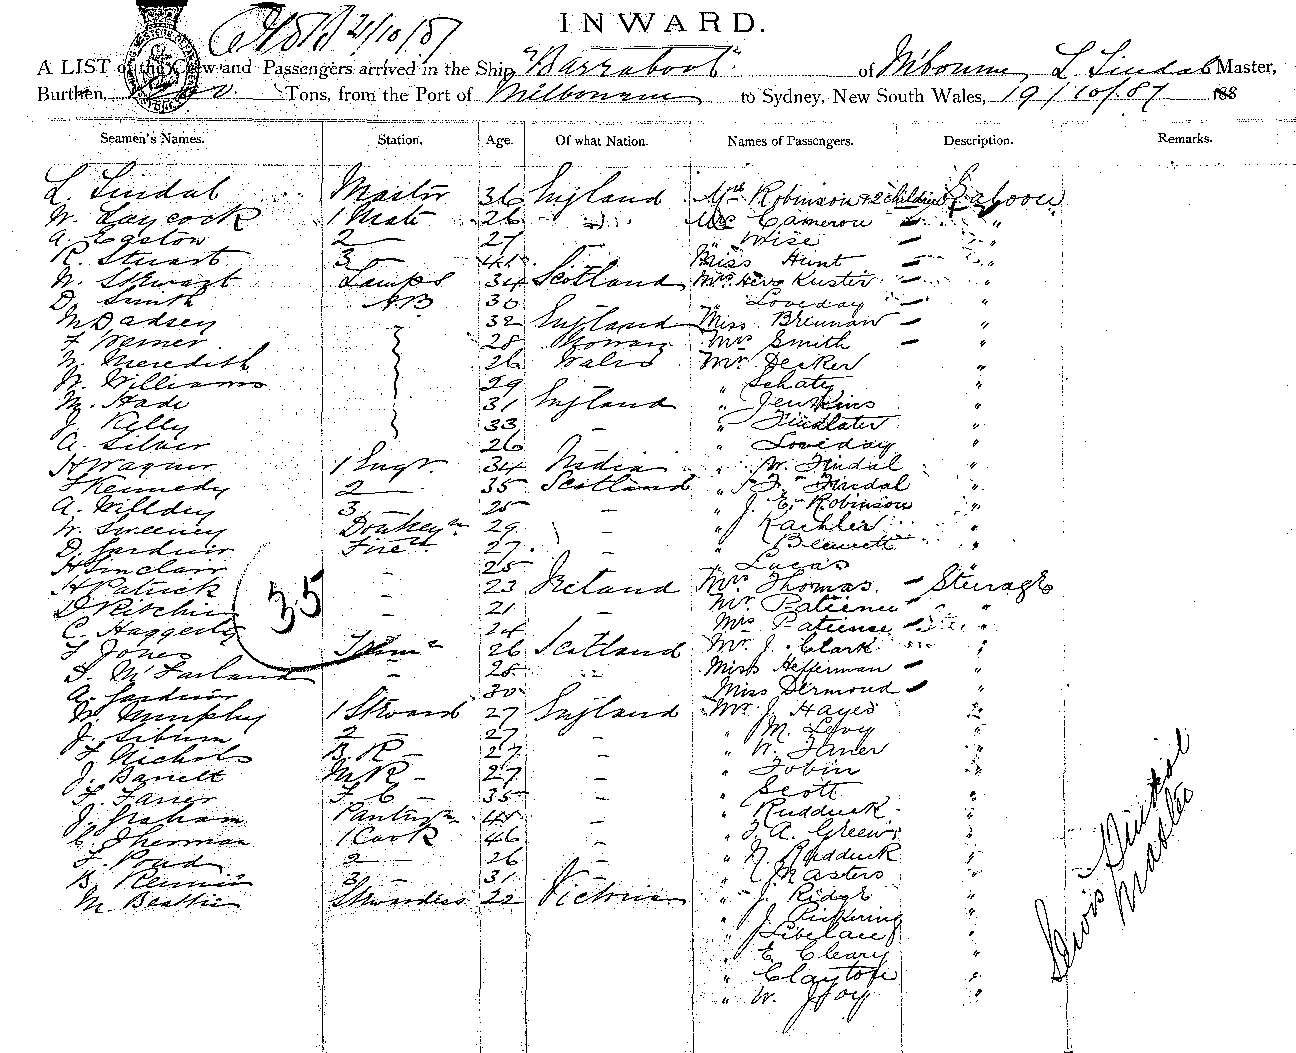 INWARD.
21/10/87
A LIST of the Crew and Passengers arrived in the Ship "Barrabool" of Melbourne L. Lindal Master,
Burthen, Tons, from the Port of Melbourne to Sydney, New South Wales, 19/10/87 188
Seamen's Names. Station. Age. Of what Nation. Names of Passengers. Description. Remarks.
L. Lindal Master 36 England Mrs Robinson & 2 children Saloon
W. Laycock 1 Mate 26 " Cameron "
A. Easton 2 — 27 Wise "
R. Stuart 3 — 41 Miss Hunt "
W. Stewart Lamps 34 Scotland Mrs Kuster "
D. Smith AB 30 Loveday "
32 England Miss Brennan "
F. 28 Mrs Smith "
W. Meredith 26 Wales Mr Decker "
W. Williams 29 " Schaty "
M. Hade 31 England " Jenkins "
J. Kelly 33 - " Findlater "
A. Silver 26 " Loveday "
H Wagner 1 Engr 34 India " W. Tindal "
F Kennedy 2 — 35 Scotland " F. Tindal "
A. Willdey 3 - 25 - " J. E. Robinson "
W. Sweeney Donkeyn 29 - " Kachler "
D. Gardiner Firen 27 - " Blewett "
H Sinclair - 25 " Lucas
H Patrick - 23 Ireland Mrs Thomas - Steerage
D Ritchie - 21 Mr Patience "
C. Haggerty 24 Mrs Patience "
35
F Jones 26 Scotland Mr J. Clark "
D. McFarland - 28 Miss Hefferman "
A. Gardiner 30 Miss Dermond "
W. Murphy 1 Steward 27 England Mr J. Hayes "
J. Siburn 2 — 27 - " M. Levy "
F Nichols B. R - 27 - " W. Farrer "
J. Barrett M.R - 27 - " Tobin "
F. Farrer F C - 35 - " Scott "
J. Graham Pantryn 45 - " Rudduck "
C. Sherman 1 Cook 46 - " F. A. Green "
F. Poad 2 — 26 - " N. Rudduck "
B. Rennie 3 - 31 " J Masters "
M. Beattie Stewardess 22 Victoria " J. Ridge "
" J. Pickering "
" Libelace "
" E. Cleary "
" Clayton "
" W. "
Master